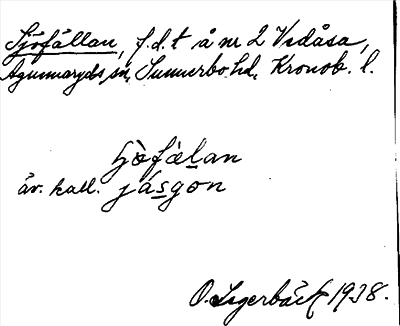 Sjöfällan, f.d.t å nr 2 Vedåsa,
Agunnaryds sn, Sunnerbo hd, Kronob. l.
fjö̀fæ̀lan
äv. kall. jásgon
O. Lagerbäck 1938.